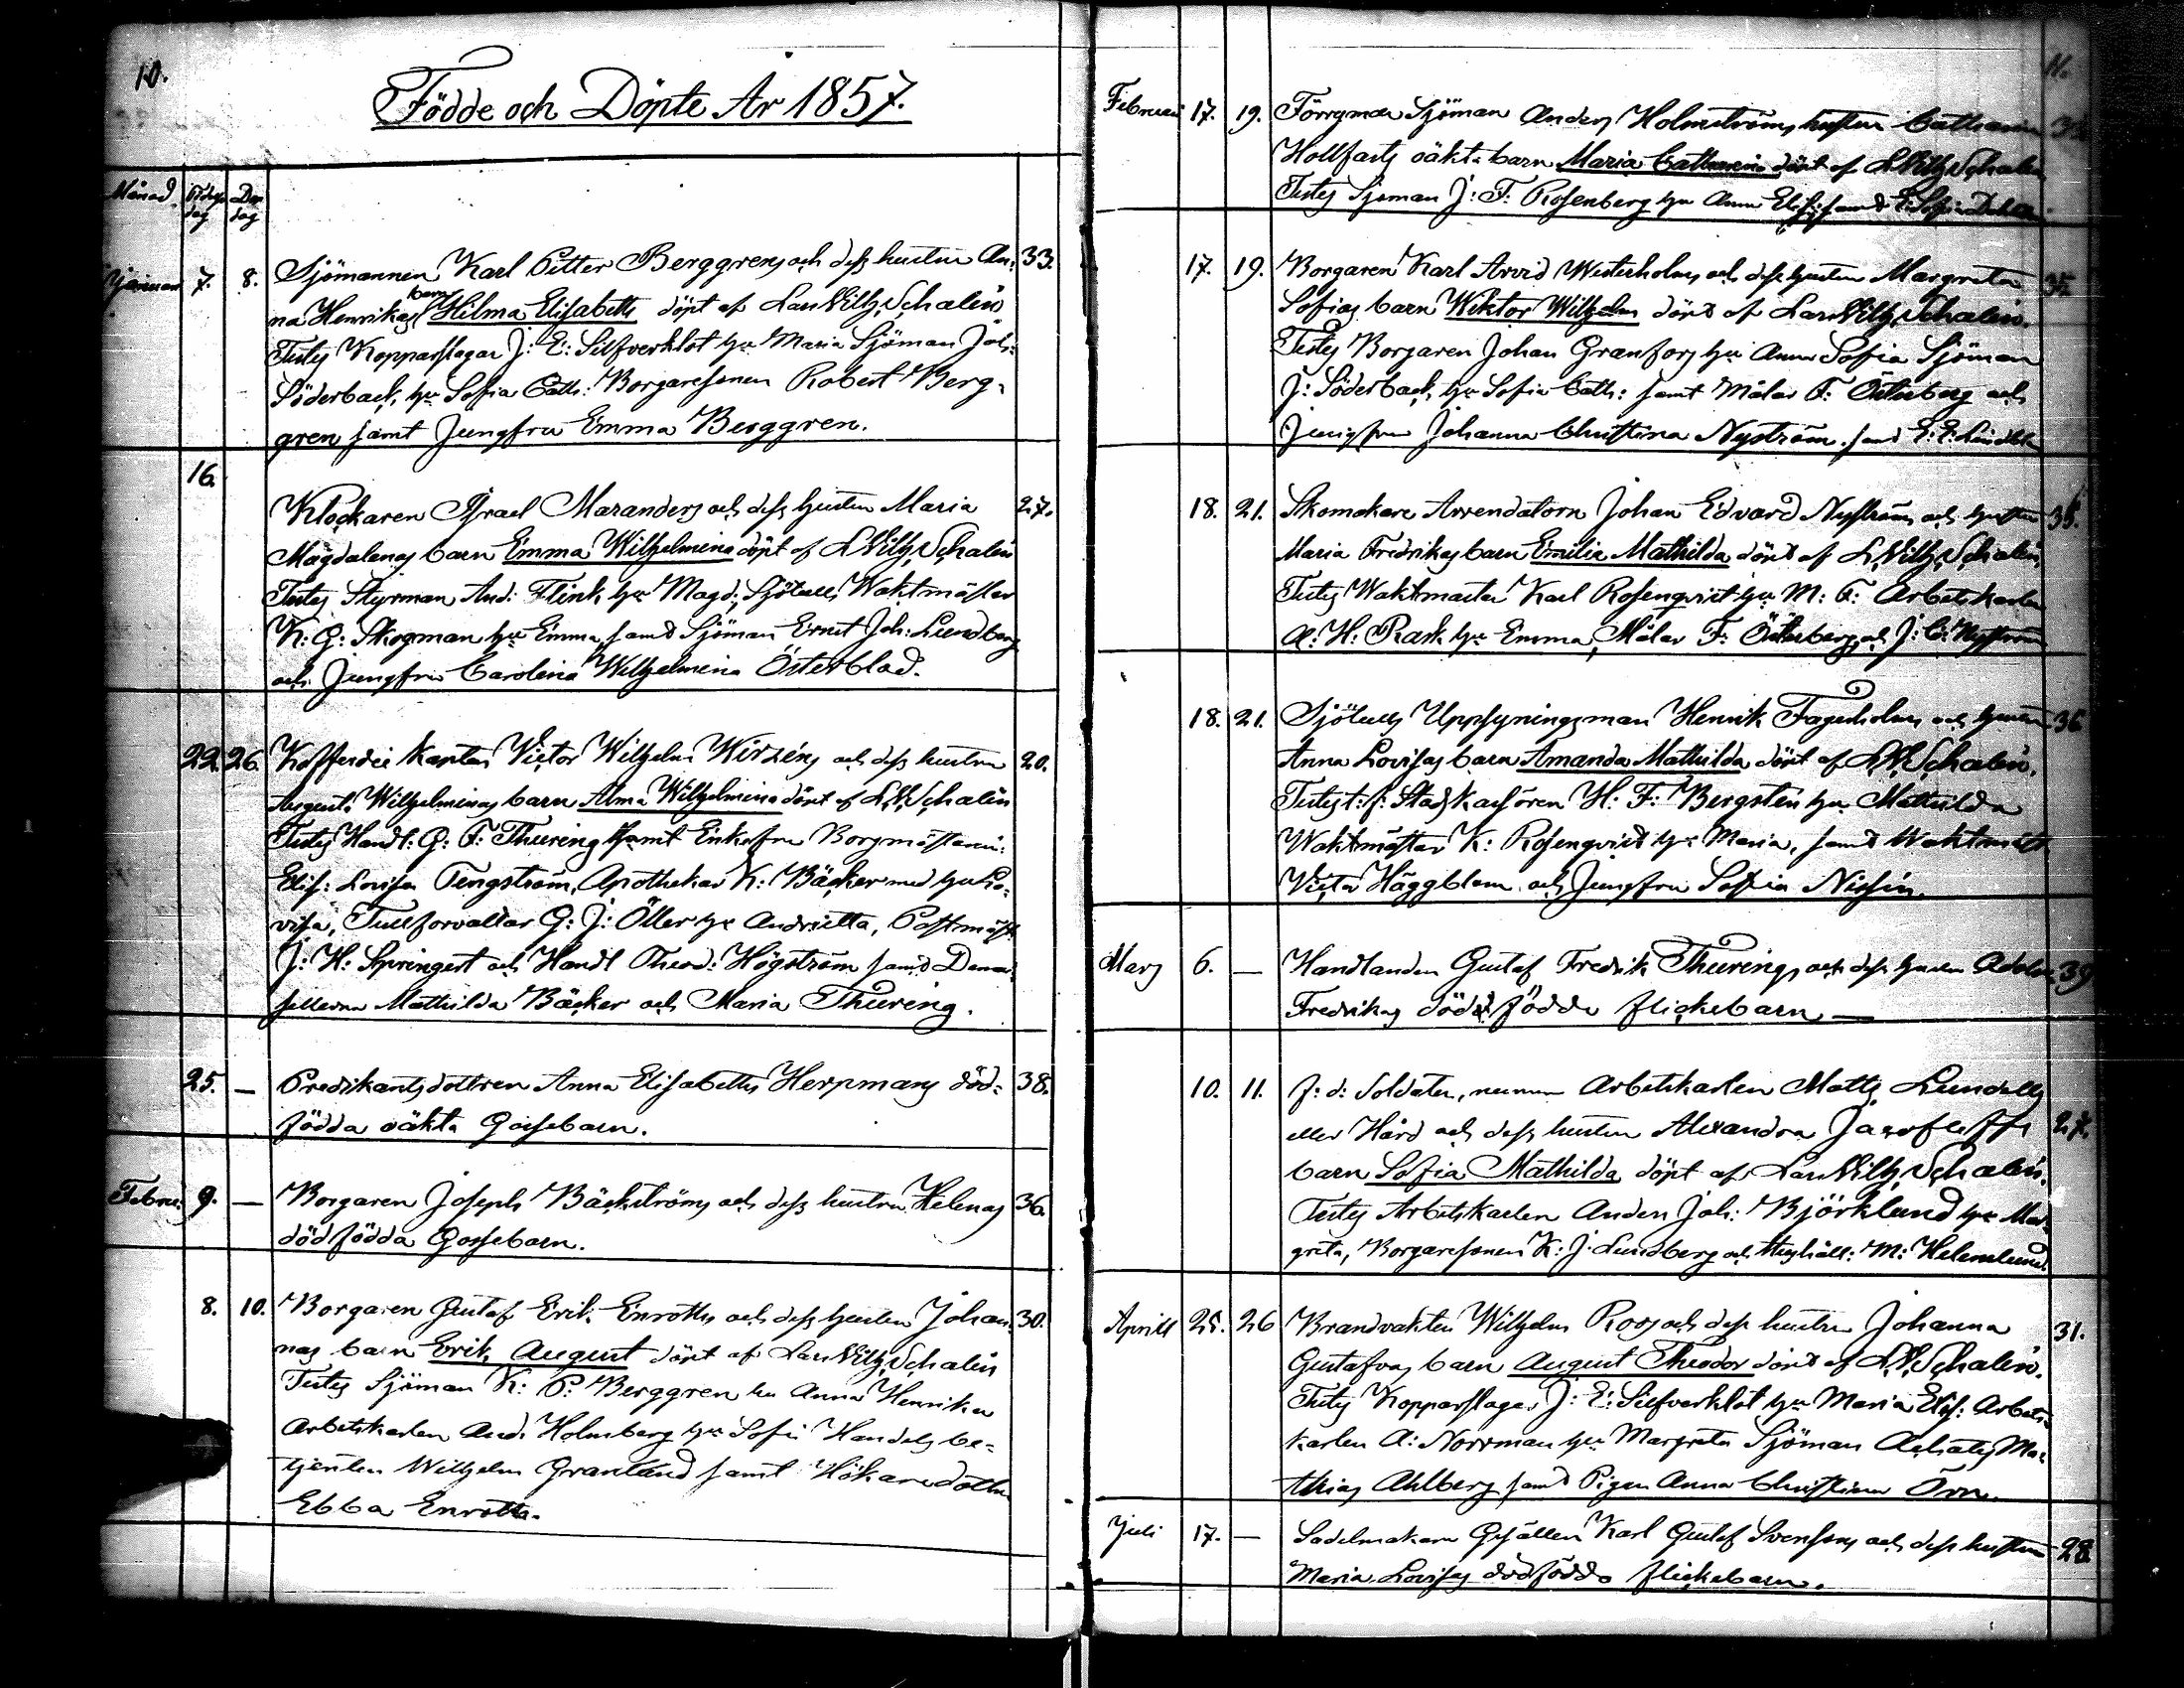 10.
Födde och Döpte År 1857.
Månad. Födelse dag Dop dag
Januari 7. 8. Sjömannen Karl Petter Berggrens och dess hustru An- 33.
na Henrikas barn Hilma Elisabeth döpt af Lars Wilh. Schalin
Testes Kopparslagar J: E: Silfverklot hu Maria Sjöman Joh:
Söderback, hu Sofia Cath: Borgaresonen Robert Berg-
gren samt Jungfru Emma Berggren.
16. Klockaren Israel Maranders och dess hustru Maria 27.
Magdalenas barn Emma Wilhelmina döpt af L. Wilh. Schalin
Testes Styrman And: Flink hu Magd: Sjötulls Waktmästar
K: G: Skogman hu Emma, samt Sjöman Ernst Joh: Lundberg
och Jungfru Carolina Wilhelmina Österblad.
22. 26. Kofferdie Kapten Victor Wilhelm Wirzéns och dess hustru 20.
August: Wilhelminas barn Alma Wilhelmina döpt af L. W. Schalin
Testes Handl: G: F: Thuring samt Enkefru Borgmästarin:
Elis: Lovisa Tengström, Apothekar K: Bäcker med hu Lo-
visa, Tullforvaltar G: J: Öller hu Andrietta, Postmäst:
J: H: Springert och Handl Theod: Högström samt Demoi-
sellerna Mathilda Bäcker och Maria Thuring.
25. — Predikantsdottren Anna Elisabeths Herpmans död- 38.
födda oäkta Gossebarn.
Februa: 9. — Borgaren Joseph Bäckströms och dess hustru Helenas 36.
dödfödda Gossebarn.
8. 10. Borgaren Gustaf Erik Enroths och dess hustru Johan- 30.
nas barn Erik August döpt af Lars Wilh. Schalin
Testes Sjöman K: P: Berggren hu Anna Henrika
Arbetskarlen And: Holmberg hu Sofi Handels be-
tjenten Wilhelm Granlund samt Hökaredottren
Ebba Enroth.
11.
Februari 17. 19. Förrymde Sjöman Anders Holmströms hustru Catharina
Hollfasts oäkta barn Maria Catharina döpt af L Wilh Schalin
Testes Sjöman J: F: Rosenberg hu Anna Elis: samt E: Sofia
17. 19. Borgaren Karl Arvid Westerholms och dess hustru Margreta
Sofias barn Wiktor Wilhelm döpt af Lars Wilh. Schalin.
Testes Borgaren Johan Granfors hu Anna Sofia Sjöman
J: Söderback, hu Sofia Cath: samt Målar F: Österberg och
Jungfru Johanna Christina Nyström. samt E: E: Lindbl
18. 21. Skomakare Arrendatorn Johan Edvard Nyströms och hustru 35.
Maria Fredrikas barn Emilia Mathilda döpt af L. Wilh. Schalin,
Testes Waktmastar Karl Rosenqvist hu M: F: Arbetskarlen
A: H: Rask hu Emma, Målar F: Österberg och J: C: Nyström
18. 21. Sjötulls Uppsyningsman Henrik Fagerholms och hustru 36
Anna Lovisas barn Amanda Mathilda döpt af L. W. Schalin.
Testes t: f: Stadskassören H: F: Bergstén hu Mathilda
Waktmästar K: Rosenqvist hu Maria, samt Waktmäst
Victor Häggblom och Jungfru Sofia Nissin.
Mars 6. — Handlanden Gustaf Fredrik Thurings och dess hustru Adolin 39
Fredrikas dödfödda flickebarn —
10. 11. f: d: Soldaten, numera Arbetskarlen Matts Lundells
eller Hård och dess hustru Alexandra Jacofleffs 27.
barn Sofia Mathilda döpt af Lars Wilh. Schalin.
Testes Arbetskarlen Anders Joh: Björklund hu Mar-
greta, Borgaresonen K: J: Lundberg och M: Helenelund.
Aprill 25. 26 Brandvakten Wilhelm Roos och dess hustru Johanna 31.
Gustafvas barn August Theodor döpt af L. W. Schalin.
Testes Kopparslagar J: E: Silfverklot hu Maria Elis: Arbets-
karlen A: Norrman hu Margreta Sjöman Achates Ma-
thias Ahlberg samt Pigan Anna Christina Örn.
Juli 17. — Sadelmakare Gesällen Karl Gustaf Svensons och dess hustru 28.
Maria Lovisas dödfödda flickebarn.